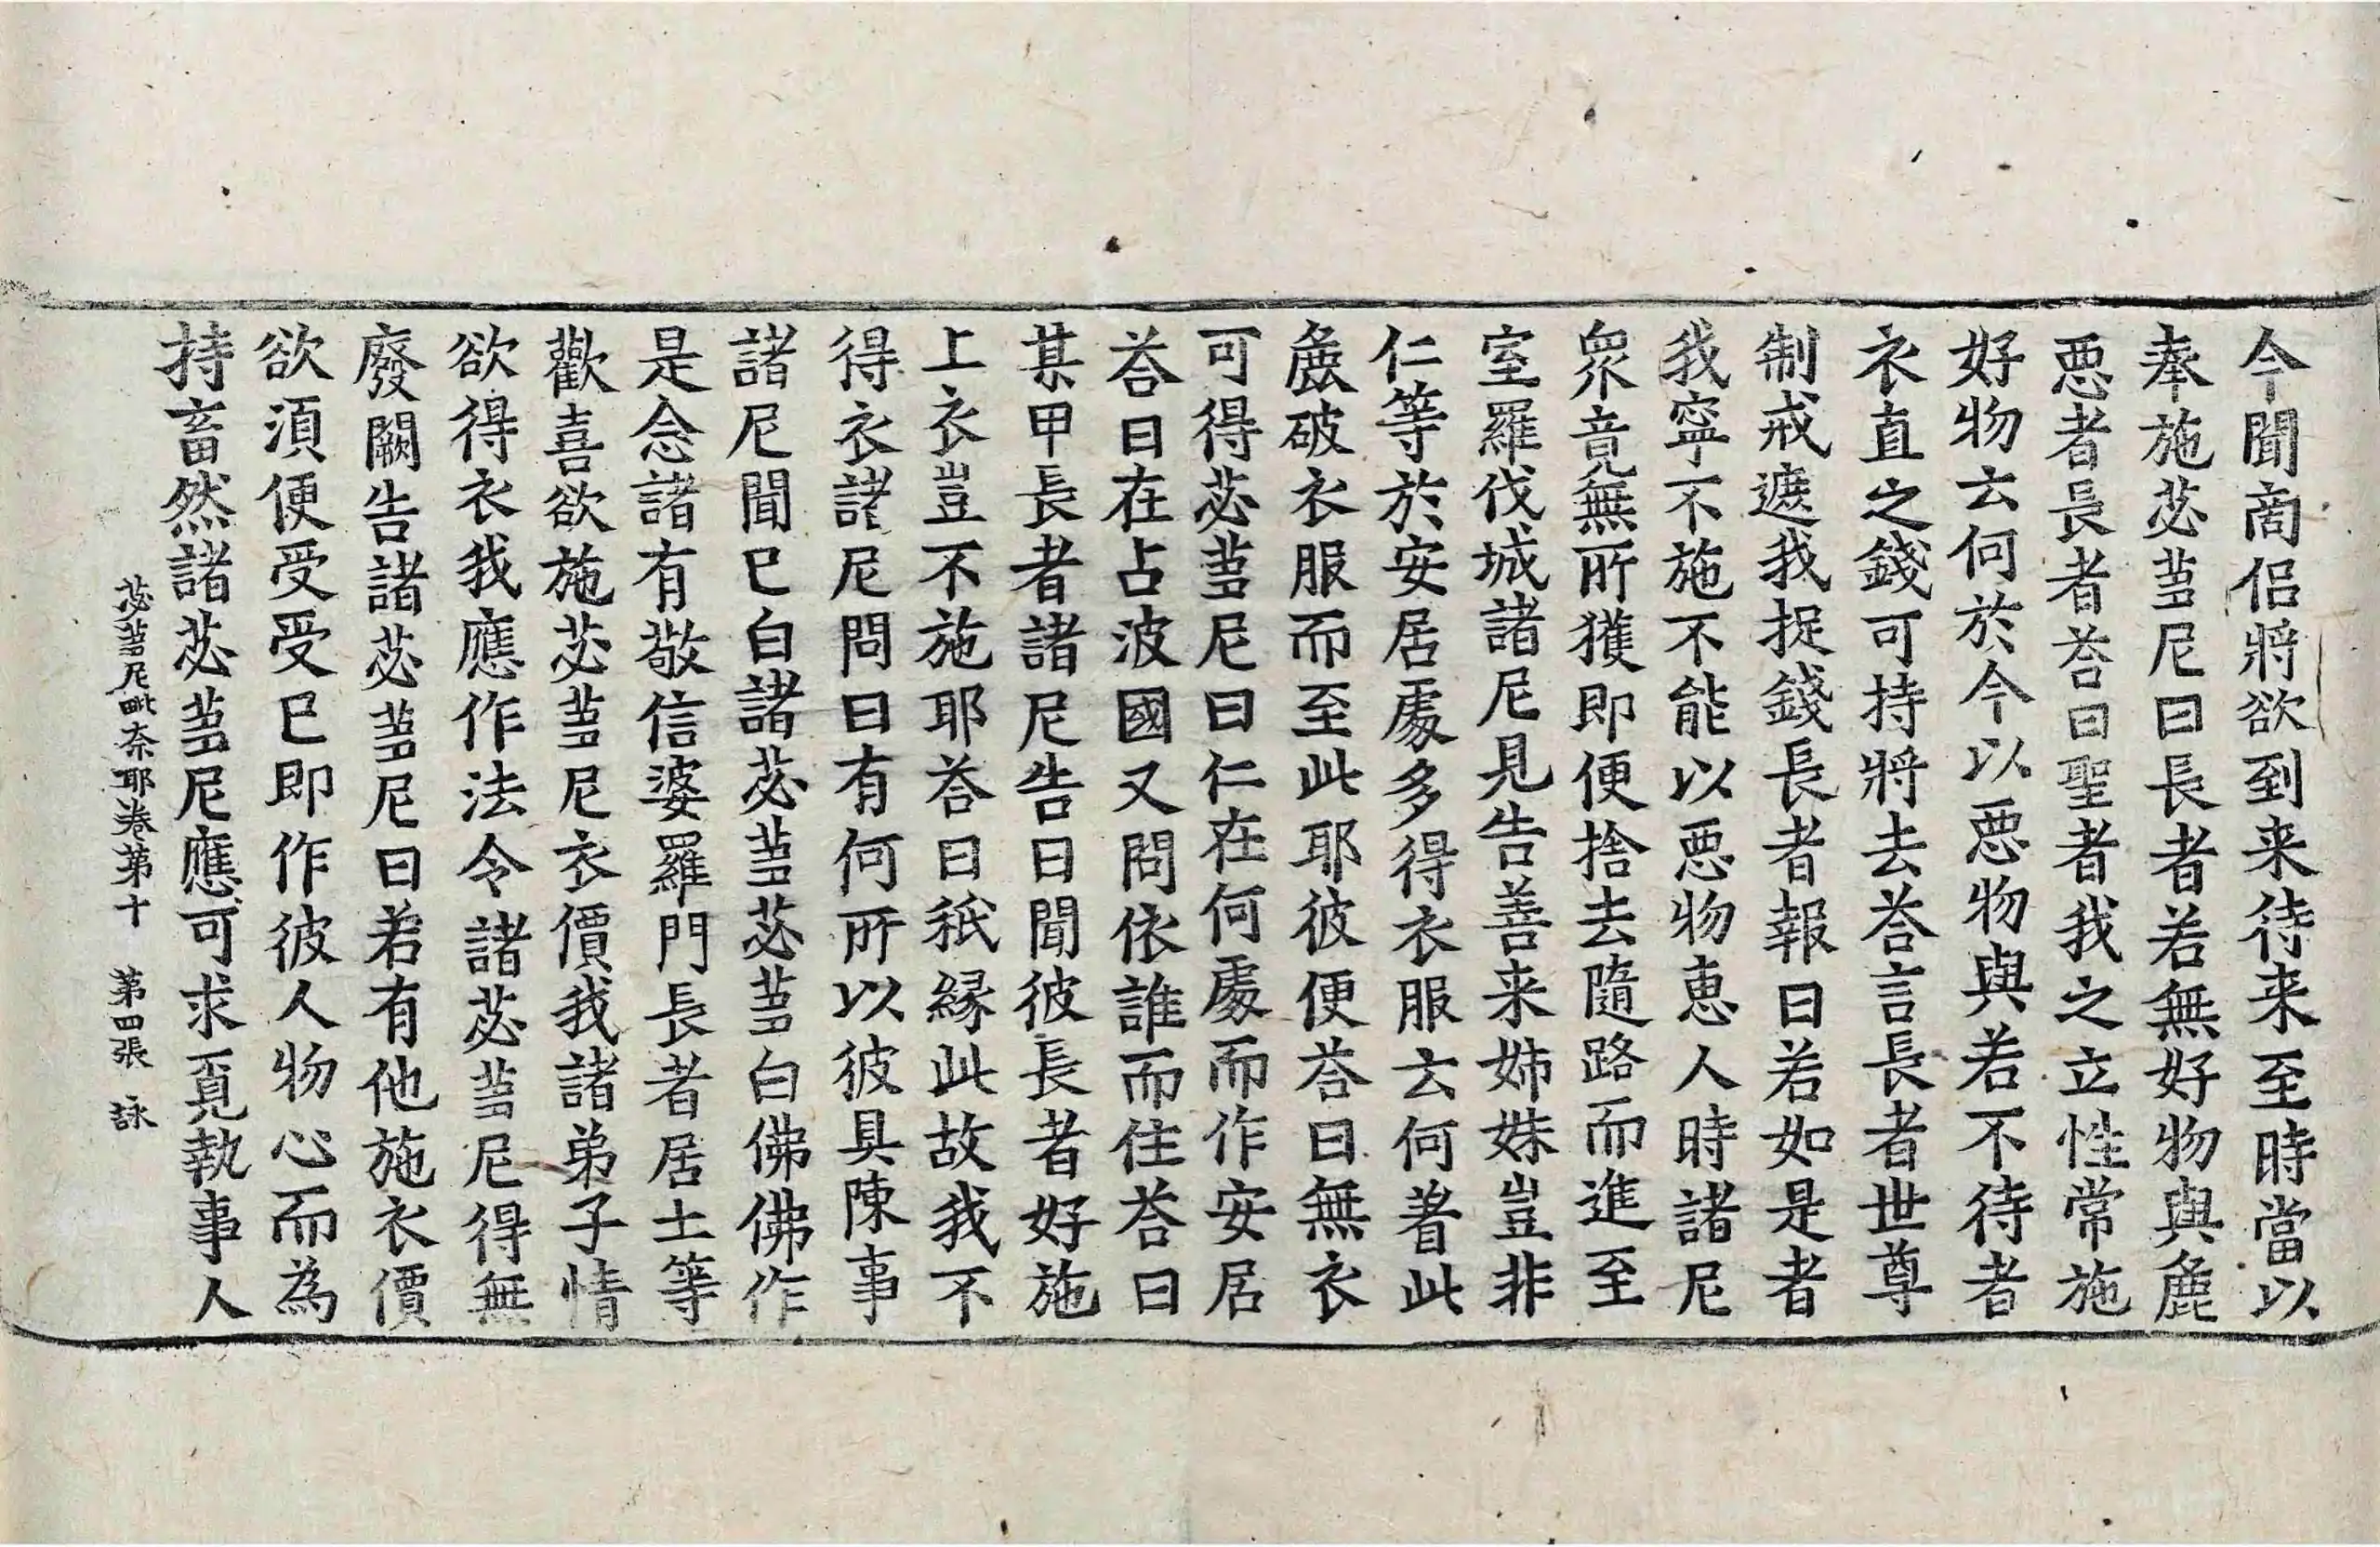 今聞商侶將欲到来待来至時當以
奉施苾蒭尼曰長者若無好物與麁
惡者長者荅曰聖者我之立性常施
好物云何於今以惡物與若不待者
衣直之錢可持將去荅言長者世尊
制戒遮我捉錢長者報曰若如是者
我寧不施不能以惡物惠人時諸尼
衆竟無所獲即便捨去隨路而進至
室羅伐城諸尼見告善来姊妹豈非
仁等於安居處多得衣服云何著此
麁破衣服而至此耶彼便荅曰無衣
可得苾蒭尼曰仁在何處而作安居
荅曰在占波國又問依誰而住荅曰
某甲長者諸尼告曰聞彼長者好施
上衣豈不施耶荅曰秖緣此故我不
得衣諸尼問曰有何所以彼具陳事
諸尼聞已白諸苾蒭苾蒭白佛佛作
是念諸有敬信婆羅門長者居士等
歡喜欲施苾蒭尼衣價我諸弟子情
欲得衣我應作法令諸苾蒭尼得無
廢闕告諸苾蒭尼曰若有他施衣價
欲須便受受已即作彼人物心而為
持畜然諸苾蒭尼應可求覓執事人
苾蒭尼毗奈耶卷第十 第四張 詠